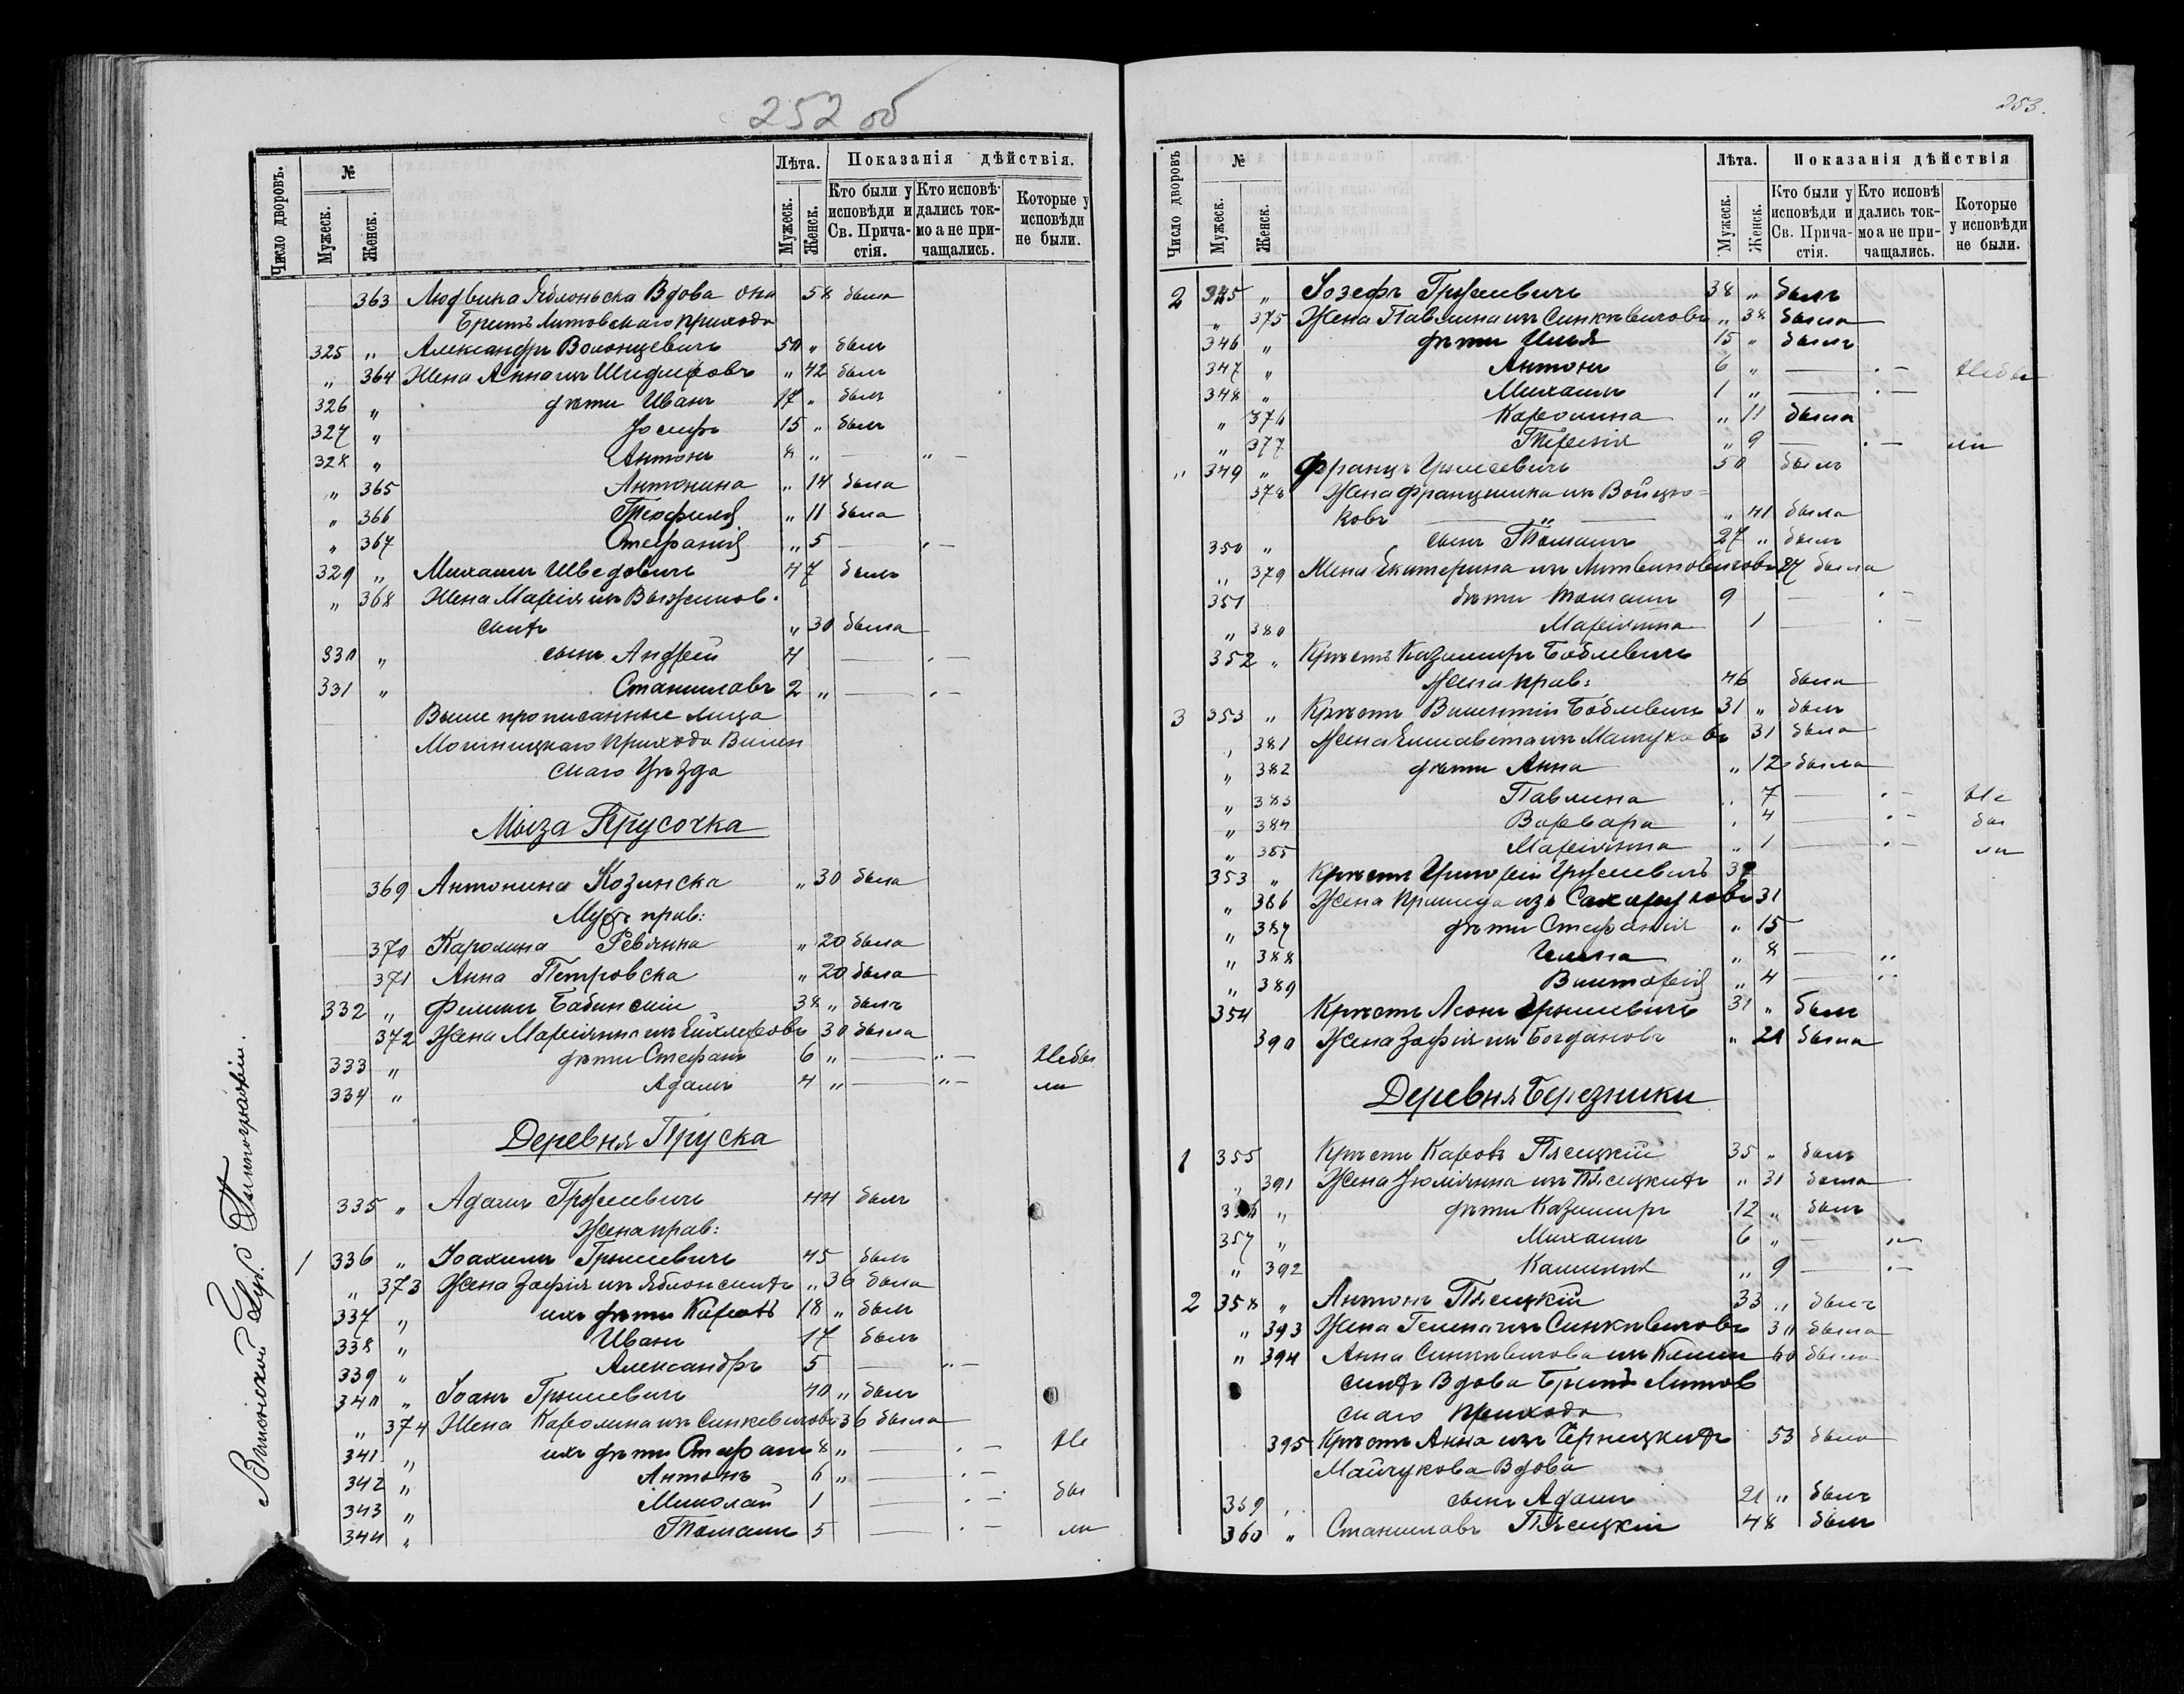 252 об
Число дворовъ.
№
Лѣта.
Показанія дѣйствія.
Мужеск.
Женск.
Мужеск.
Женск.
Кто были у исповѣди и Св. Прича-стія.
Кто исповѣ-дались ток-мо а не при-чащались.
Которые у исповѣди не были.
363 Людвика Яблоньска Вдова она 58 была
Бритъ Литовскаго прихода
325 „ Александръ Волонцевичъ 50 „ былъ
„ 364 Жена Анна изъ „ 42 былъ
326 „ дѣти Иванъ 17 „ былъ
327 „ Іосифъ 15 „ былъ
328 „ Антонъ 8 „ — „ —
„ 365 Антонина „ 14 была
„ 366 Теофиля „ 11 была
„ 367 Стефанія „ 5 — „ —
329 „ Михаилъ Шведовичъ 47 былъ
„ 368 Жена Марія изъ
скихъ „ 30 была
330 „ сынъ Андрей 4 — „ —
331 „ Станиславъ 2 „ — „ —
Выше прописанные лица
прихода Вилен
скаго Уѣзда
Мыза Прусочка
369 Антонина Козинска „ 30 была
Мужъ прав:
370 Каролина Ревянна „ 20 была
371 Анна Петровска „ 20 была
332 „ Филипъ Бабинскій 38 „ былъ
372 Жена Маріянна изъ 30 была
333 „ дѣти Стефанъ 6 „ — „ — Небы
334 „ Адамъ 4 „ — „ — ли
Деревня Пруска
335 „ Адамъ Гружевичъ 44 былъ
Жена прав:
1 336 „ Іоахимъ Грышевичъ 45 былъ
„ 373 Жена Зофія изъ Яблонскихъ „ 36 была
337 „ ихъ дѣти Кароль 18 „ былъ
338 „ Иванъ 17 былъ
339 „ Александръ 5 — „ —
340 „ Іоанъ Грышевичъ 40 „ былъ
„ 374 Жена Каролина изъ Синкевичовъ 36 была
341 „ ихъ дѣти Стефанъ 8 „ — „ — Не
342 „ Антонъ 6 „ — „ —
343 „ Миколай 1 — „ — бы
344 „ Томашъ 5 — „ — ли
Виленской Губ. Типографіи.
253.
Число дворовъ
№
Лѣта.
Показанія дѣйствія
Мужеск.
Женск.
Мужеск.
Женск.
Кто были у исповѣди и Св. Прича-стія.
Кто исповѣ дались ток-мо а не при-чащались.
Которые у исповѣди не были.
2 345 „ Іозефъ Гружевичъ 38 „ былъ
„ 375 Жена Павлина изъ Синкѣвичовъ „ 38 была
346 „ дѣти Илья 15 „ былъ
347 „ Антонъ 6 „ — „ — Небы
348 „ Михаилъ 1 „ — „ —
„ 376 Каролина „ 11 была
„ 377 Терезія „ 9 — „ — ли
„ 349 „ Францъ Грышевичъ 50 былъ
378 Жена Францишка изъ Войцю=
ковъ — „ — „ 41 была
350 „ сынъ Томашъ 27 „ былъ
„ 379 Жена Екатерина изъ Литвиновичовъ 27 была
351 дѣти Томашъ 9 — „ —
„ 380 Маріянна 1 — „ —
352 „ Крѣстъ Казимиръ Баблевичъ
Жена прав: 46 была
3 353 „ Крѣстъ Викентій Баблевичъ 31 „ былъ
„ 381 Жена Елисавета изъ Майчуковъ 31 была
„ 382 дѣти Анна „ 12 была
„ 383 Павлина „ 7 — „ — Не
„ 384 Варвара „ 4 — „ — бы
„ 385 Маріянна „ 1 — „ — ли
353 „ Крѣстъ Григорій Гружевичъ 38
„ 386 Жена изъ 31
„ 387 дѣти Стефанія „ 15
„ 388 Гелена „ 8 — „
„ 389 Викторія „ 4 — „
354 Крѣстъ Леонъ Грышевичъ 31 „ былъ
390 Жена Зофія изъ Богдановъ „ 21 была
Деревня Березники
1 355 Крѣстъ Кароль Пясецкій 35 „ былъ
„ 391 Жена Юліянна изъ Пясецкихъ „ 31 была
356 „ дѣти Казимиръ 12 „ былъ
357 „ Михаилъ 6 „ — „
„ 392 Камилия „ 9 — „
2 358 „ Антонъ Пясецкій 33 „ былъ
„ 393 Жена Гелена изъ Синкѣвичовъ 30 была
„ 394 Анна Синкѣвичова изъ 60 была
скихъ Вдова Бритъ Литов
скаго Прихода
395 Крѣстъ Анна изъ Черницкихъ 53 была
Майчукова Вдова
359 „ сынъ Адамъ 21 „ былъ
360 „ Станиславъ Пясецкій 48 былъ